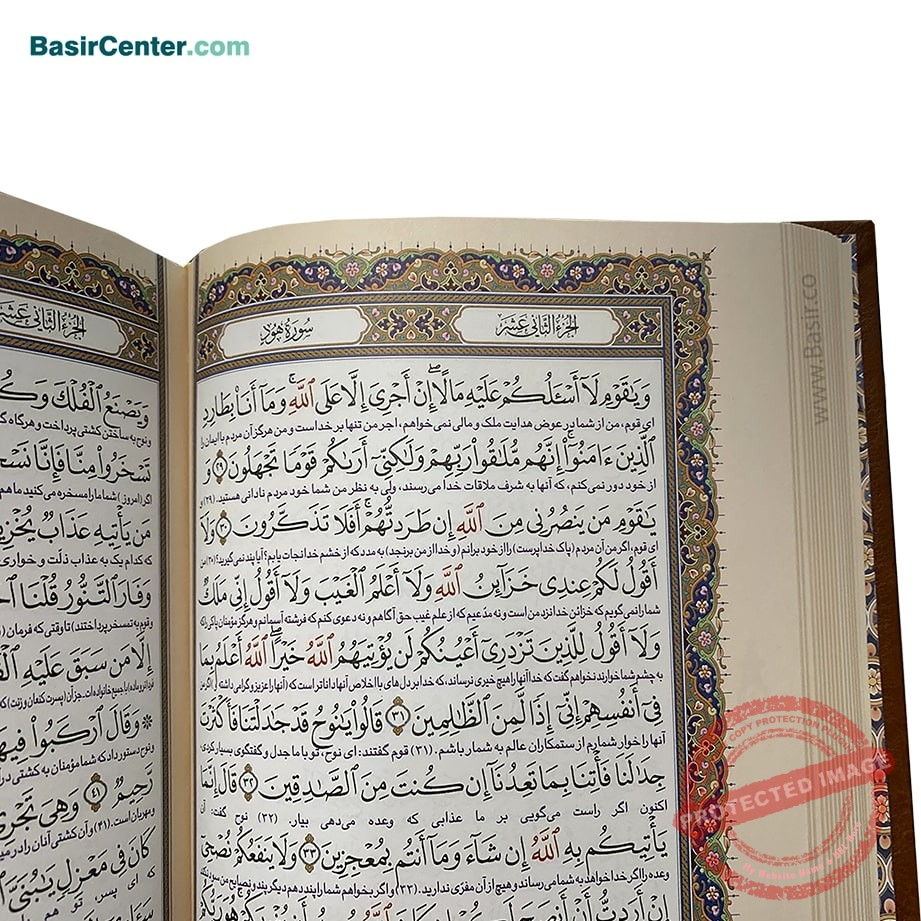 BasirCenter.com
الجزء الثاني عشر
سورة هود
وَيَٰقَوْمِ لَآ أَسْـَٔلُكُمْ عَلَيْهِ مَالًا ۖ إِنْ أَجْرِىَ إِلَّا عَلَى ٱللَّهِ ۚ وَمَآ أَنَا۠ بِطَارِدِ
ای قوم، من از شما در عوض هدایت ملک و مالی نمی‌خواهم، اجر من تنها بر خداست و من هرگز آن مردم با ایمان را
ٱلَّذِينَ ءَامَنُوٓا۟ ۚ إِنَّهُم مُّلَٰقُوا۟ رَبِّهِمْ وَلَٰكِنِّىٓ أَرَىٰكُمْ قَوْمًا تَجْهَلُونَ ٢٩ وَ
از خود دور نمی‌کنم، که آنها به شرف ملاقات خدا می‌رسند، ولی به نظر من شما خود مردم نادانی هستید. (۲۹) و
يَٰقَوْمِ مَن يَنصُرُنِى مِنَ ٱللَّهِ إِن طَرَدتُّهُمْ ۚ أَفَلَا تَذَكَّرُونَ ٣٠ وَلَآ
ای قوم، اگر من آن مردم (پاک خداپرست) را از خود برانم (و خدا از من برنجد) به مدد که از خشم خدا نجات یابم؟ آیا پند نمی‌گیرید؟ (۳۰) من
أَقُولُ لَكُمْ عِندِى خَزَآئِنُ ٱللَّهِ وَلَآ أَعْلَمُ ٱلْغَيْبَ وَلَآ أَقُولُ إِنِّى مَلَكٌ
شما را نمی‌گویم که خزائن خدا نزد من است و نه مدّعیم که از علم غیب حق آگاهم و نه دعوی کنم که فرشته آسمانم و هرگز مؤمنان پاکی را که
وَلَآ أَقُولُ لِلَّذِينَ تَزْدَرِىٓ أَعْيُنُكُمْ لَن يُؤْتِيَهُمُ ٱللَّهُ خَيْرًا ۖ ٱللَّهُ أَعْلَمُ بِمَا
به چشم شما خوارند نخواهم گفت که خدا آنها را هیچ خیری نرساند، که خدا بر دل‌های با اخلاص آنها داناتر است که (آنها را عزیز و گرامی داشته) اگر
فِىٓ أَنفُسِهِمْ ۖ إِنِّىٓ إِذًا لَّمِنَ ٱلظَّٰلِمِينَ ٣١ قَالُوا۟ يَٰنُوحُ قَدْ جَٰدَلْتَنَا فَأَكْثَرْتَ
آنها را خوار شمارم از ستمکاران عالم به شمار باشم. (۳۱) قوم گفتند: ای نوح، تو با ما جدل و گفتگوی بسیار کردی،
جِدَٰلَنَا فَأْتِنَا بِمَا تَعِدُنَآ إِن كُنتَ مِنَ ٱلصَّٰدِقِينَ ٣٢ قَالَ إِنَّمَا
اکنون اگر راست می‌گویی بر ما عذابی که وعده می‌دهی بیار. (۳۲) نوح گفت: آن
يَأْتِيكُم بِهِ ٱللَّهُ إِن شَآءَ وَمَآ أَنتُم بِمُعْجِزِينَ ٣٣ وَلَا يَنفَعُكُمْ نُصْحِىٓ
وعده را اگر خدا خواهد به شما می‌رساند و هیچ از آن مفرّی ندارید. (۳۳) و اگر بخواهم شما را پند دهم دیگر پند و نصایح من سود نکند
إِنْ أَرَدتُّ أَنْ أَنصَحَ
الجزء الثاني عشر
وَيَصْنَعُ ٱلْفُلْكَ وَكُ
و نوح به ساختن کشتی پرداخت و هرگاه که
تَسْخَرُوا۟ مِنَّا فَإِنَّا نَسْخَ
اگر (امروز) شما ما را مسخره می‌کنید ما هم
مَن يَأْتِيهِ عَذَابٌ يُخْزِي
که کدام یک به عذاب ذلّت و خواری
وَفَارَ ٱلتَّنُّورُ قُلْنَا ٱحْ
و قوم به تمسخر پرداختند) تا وقتی که فرمان
إِلَّا مَن سَبَقَ عَلَيْهِ ٱلْقَ
وَقَالَ ٱرْكَبُوا۟ فِيهَ
و نوح دستور داد که شما مؤمنان به کشتی در
رَّحِيمٌ ٤١ وَهِىَ تَجْرِى
و مهربان است. (۴۱) و آن کشتی آنان را در میان
كَانَ فِى مَعْزِلٍ يَٰبُنَىَّ ٱ
که ای پسر، تو هم
www.Basir.co
COPY PROTECTION
PROTECTED IMAGE